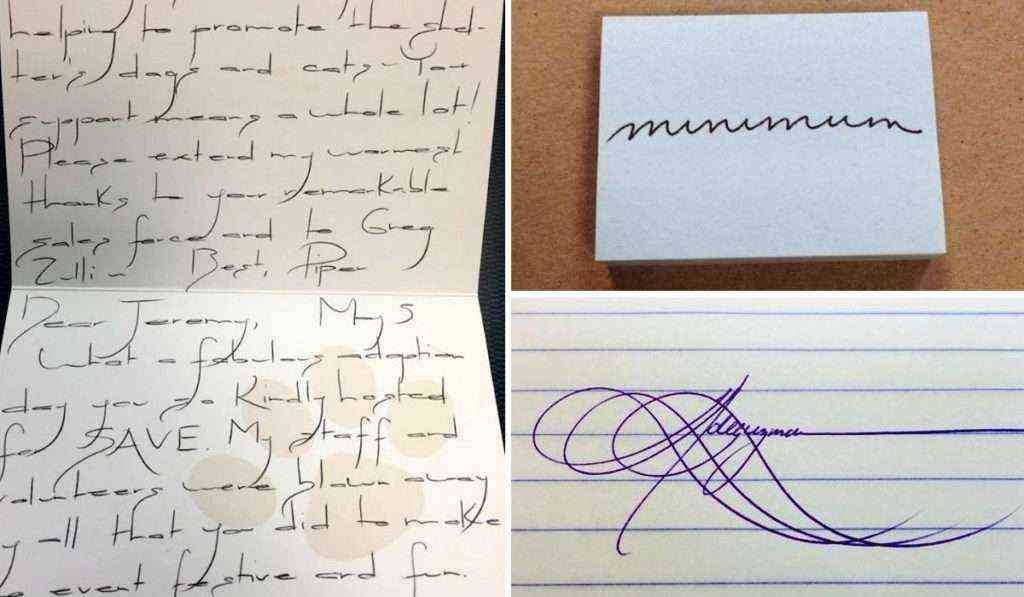 helping to promote the shel-
ter's dogs and cats - Your
support means a whole lot!
Please extend my warmest
thanks to your remarkable
sales force and to Greg
Zulli - Best, Piper
Dear Jeremy, May 5
What a fabulous adoption
day you so kindly hosted
fo SAVE. My staff and
volunteers were blown away
y all that you did to make
e event festive and fun.
minimum